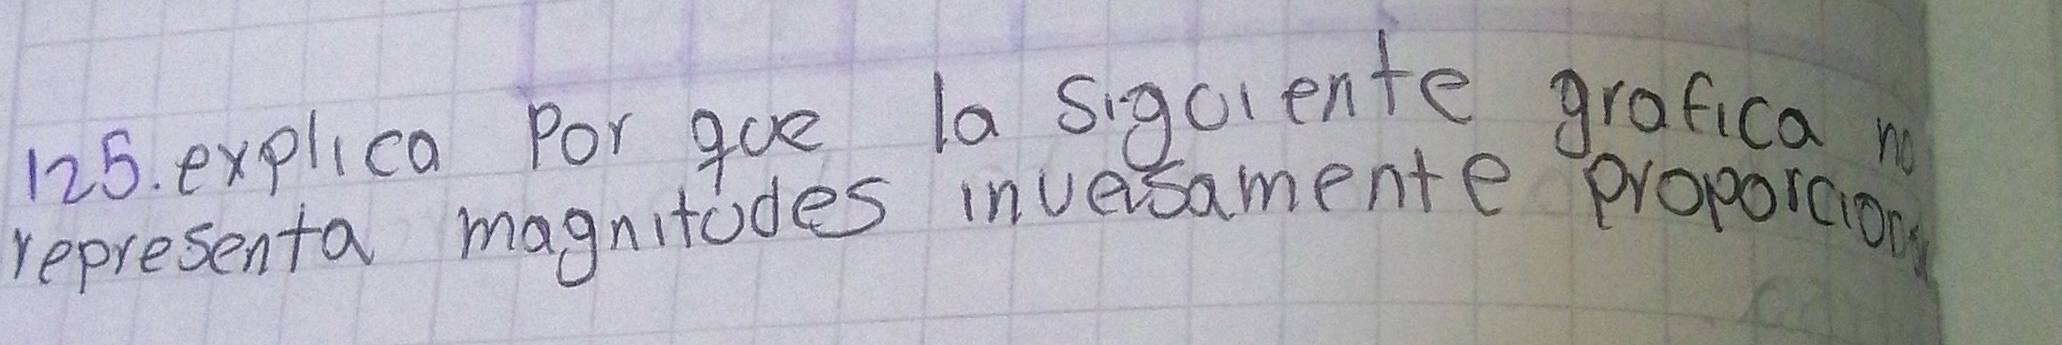 125. explica Por que la siguiente grafica no
representa magnitudes invesamente proporcional